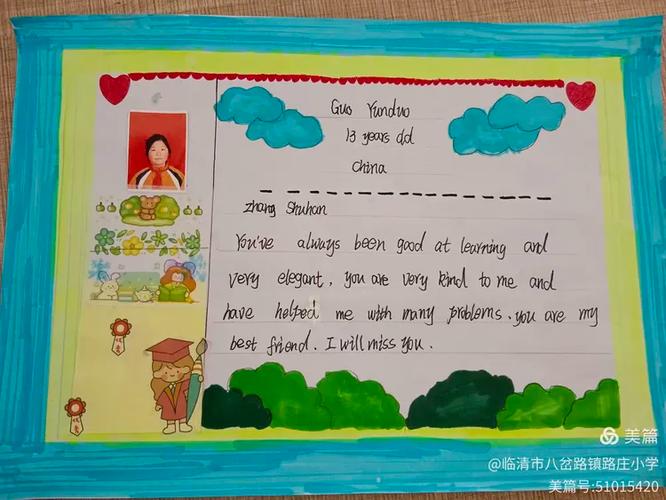 Guo Yunduo
13 years old
China
zhang Shuhan
You've always been good at learning and
very elegant, you are very kind to me and
have helped me with many problems. you are my
best friend. I will miss you.
美篇
@临清市八岔路镇路庄小学
美篇号:51015420